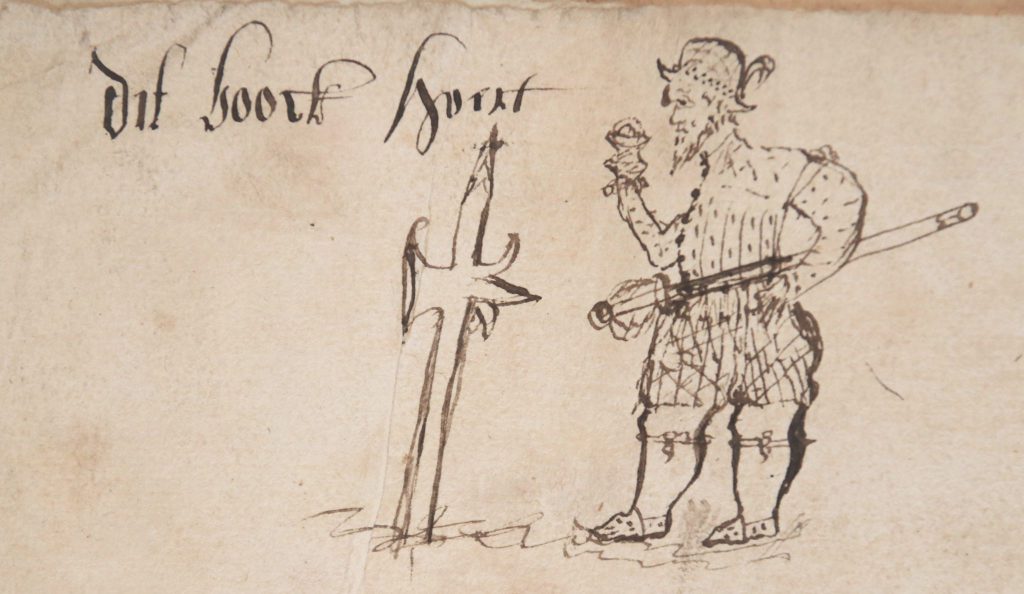 dit boock hoert